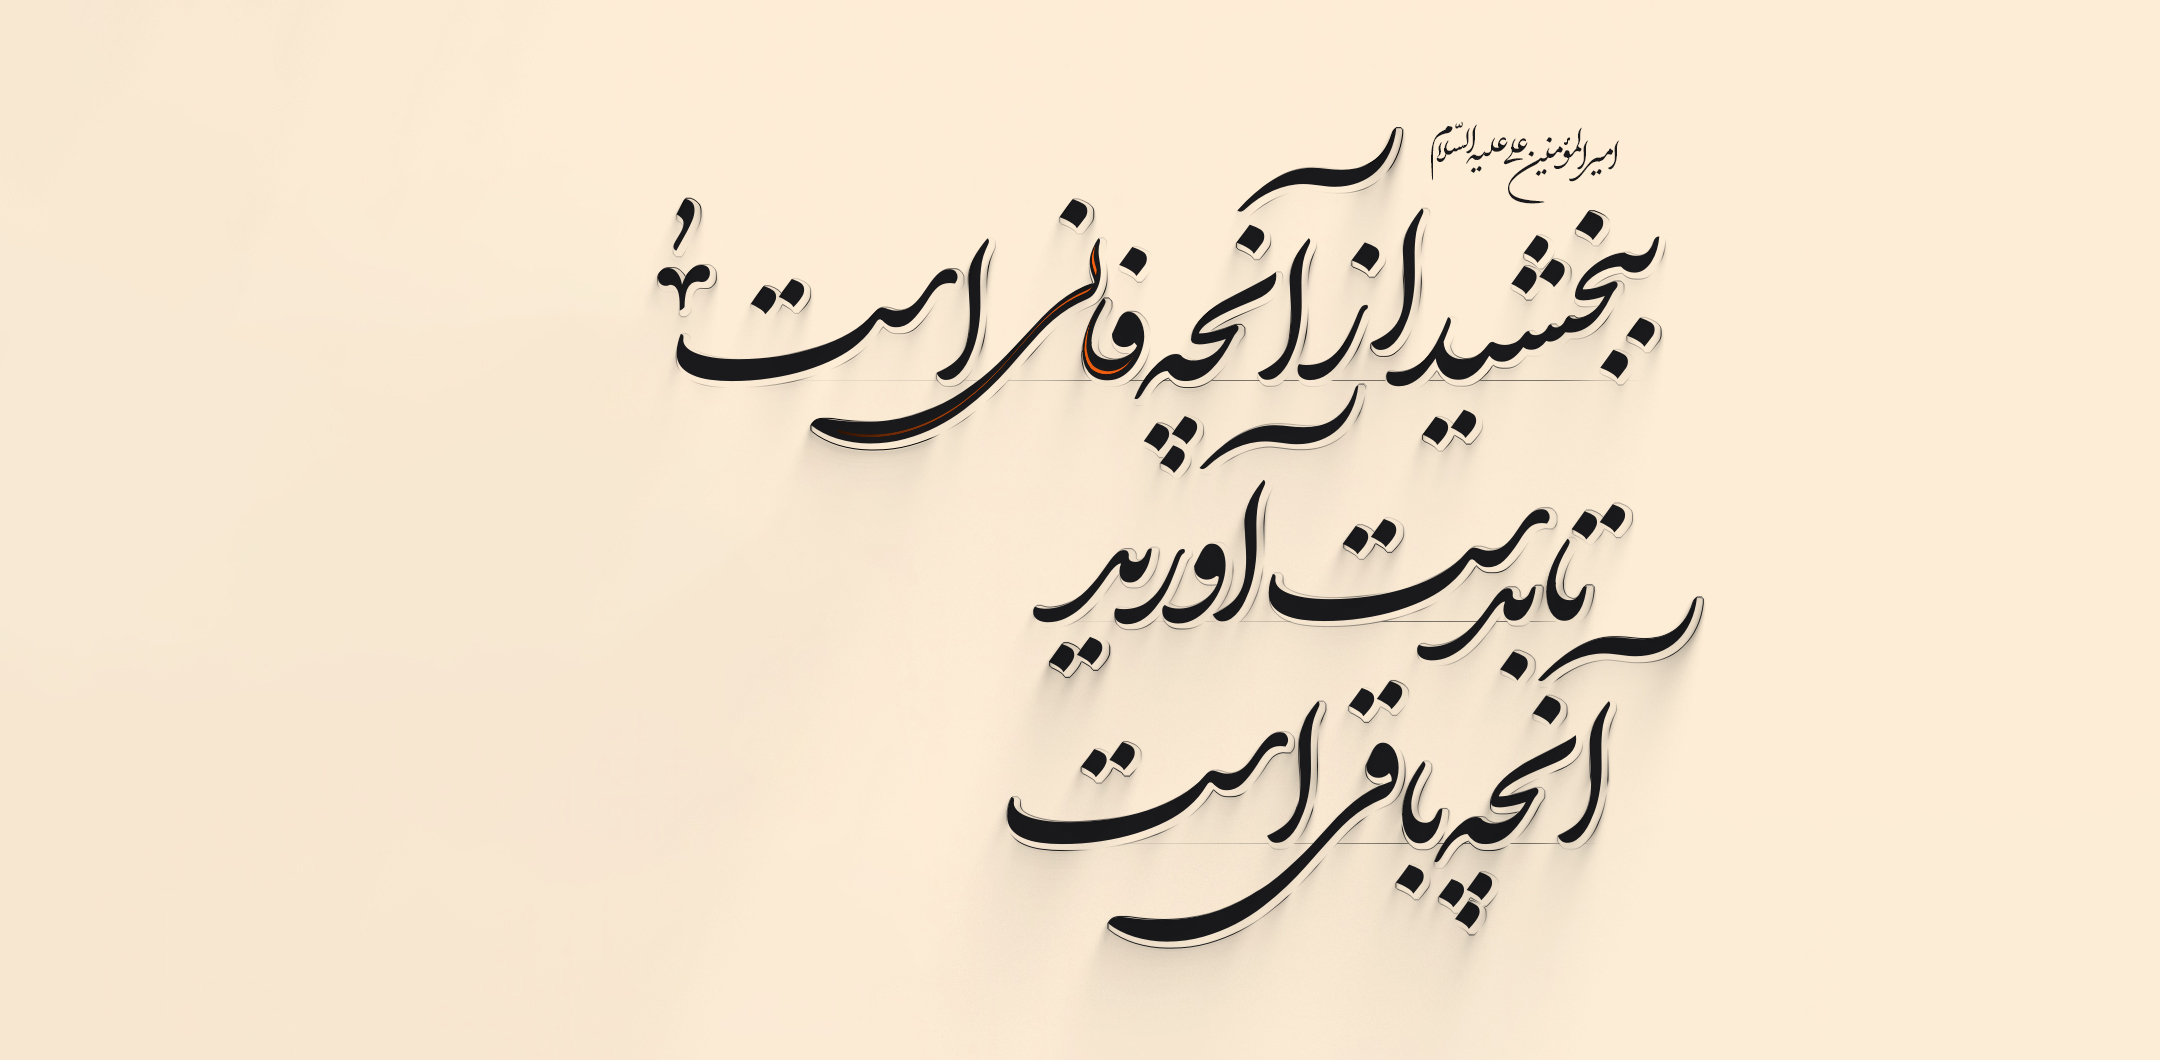 امیرالمؤمنین علی علیه السّلام
ببخشید از آنچه فانی است؛
تا بدست آورید
آنچه باقی است